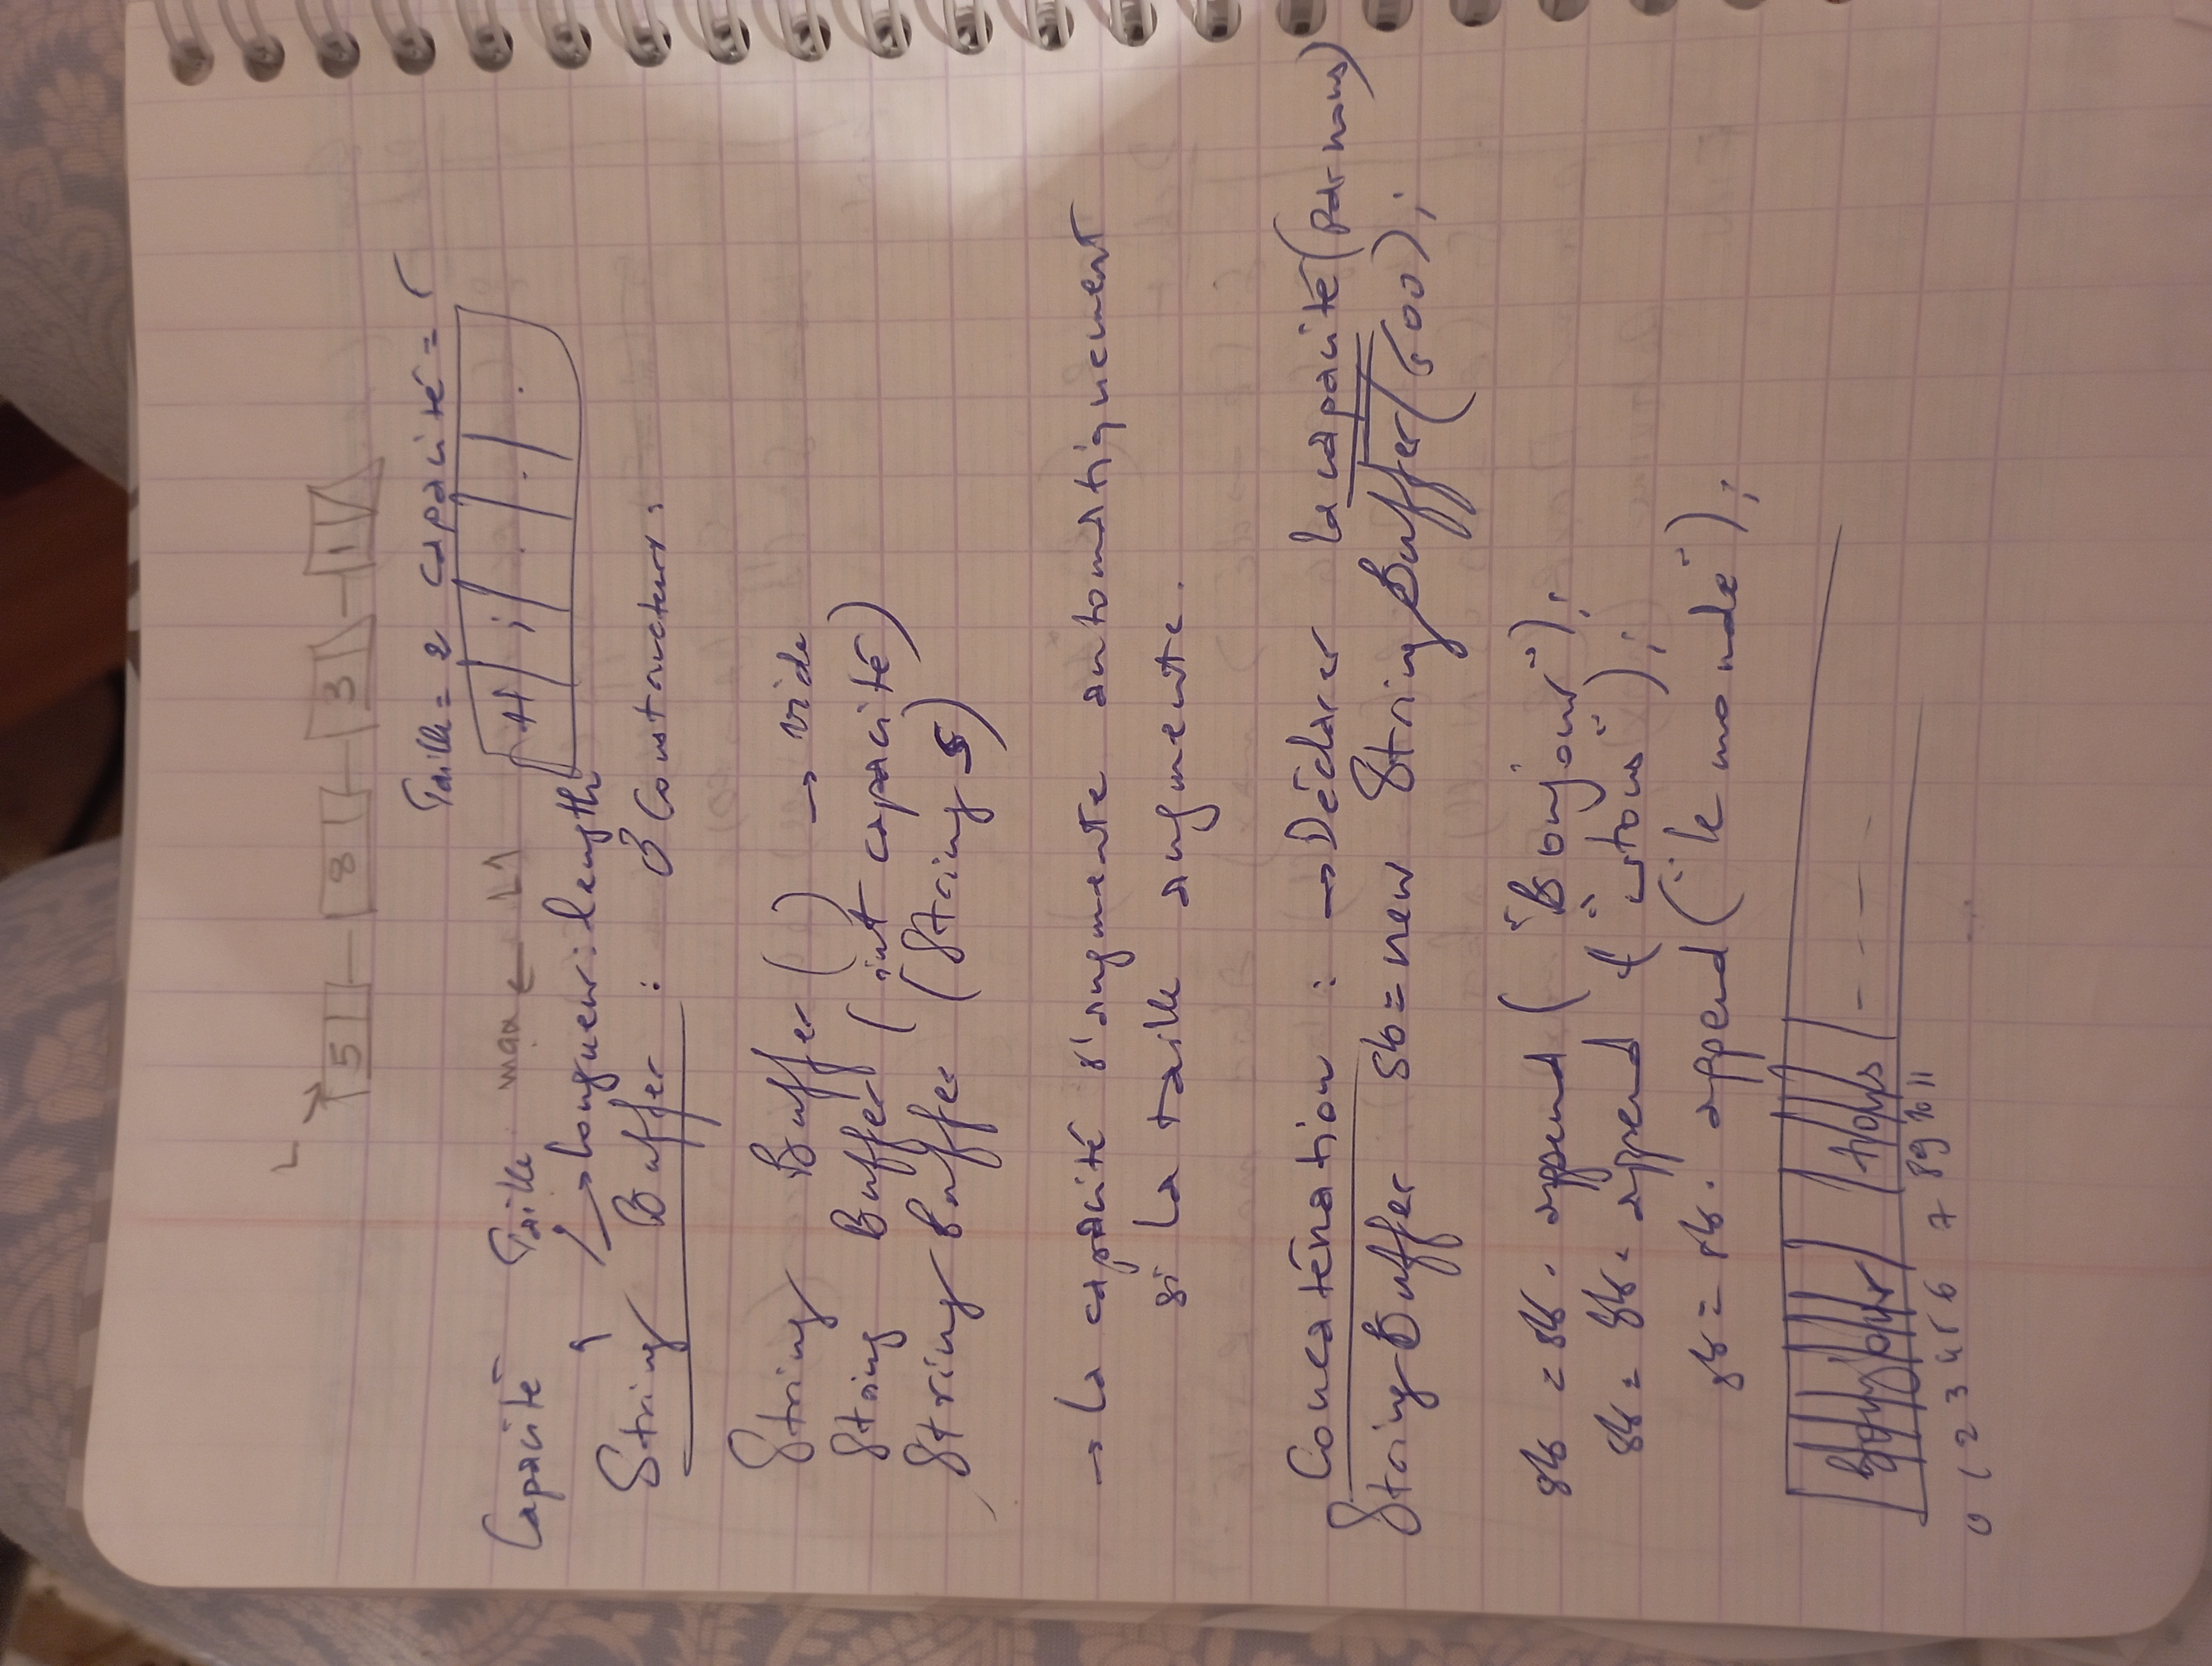 L
5 8 3 1
Taille = 2 capacité = 5
Capacité Taille max ← L1 H i . . .
→ longueur : length
String Buffer : 3 Constructeurs :
String Buffer ( ) → vide
String Buffer ( int capacité )
String Buffer (String s)
→ la capacité s'augmente automatiquement
si la taille augmente.
Concaténation : → Déclarer la capacité (par nous)
StringBuffer sb = new StringBuffer(500);
sb = sb. append ( "Bonjour" );
sb = sb. append ( " tous" );
sb = sb. append ( "le monde" );
Bonjour tous - - - - -
0 1 2 3 4 5 6 7 8 9 10 11